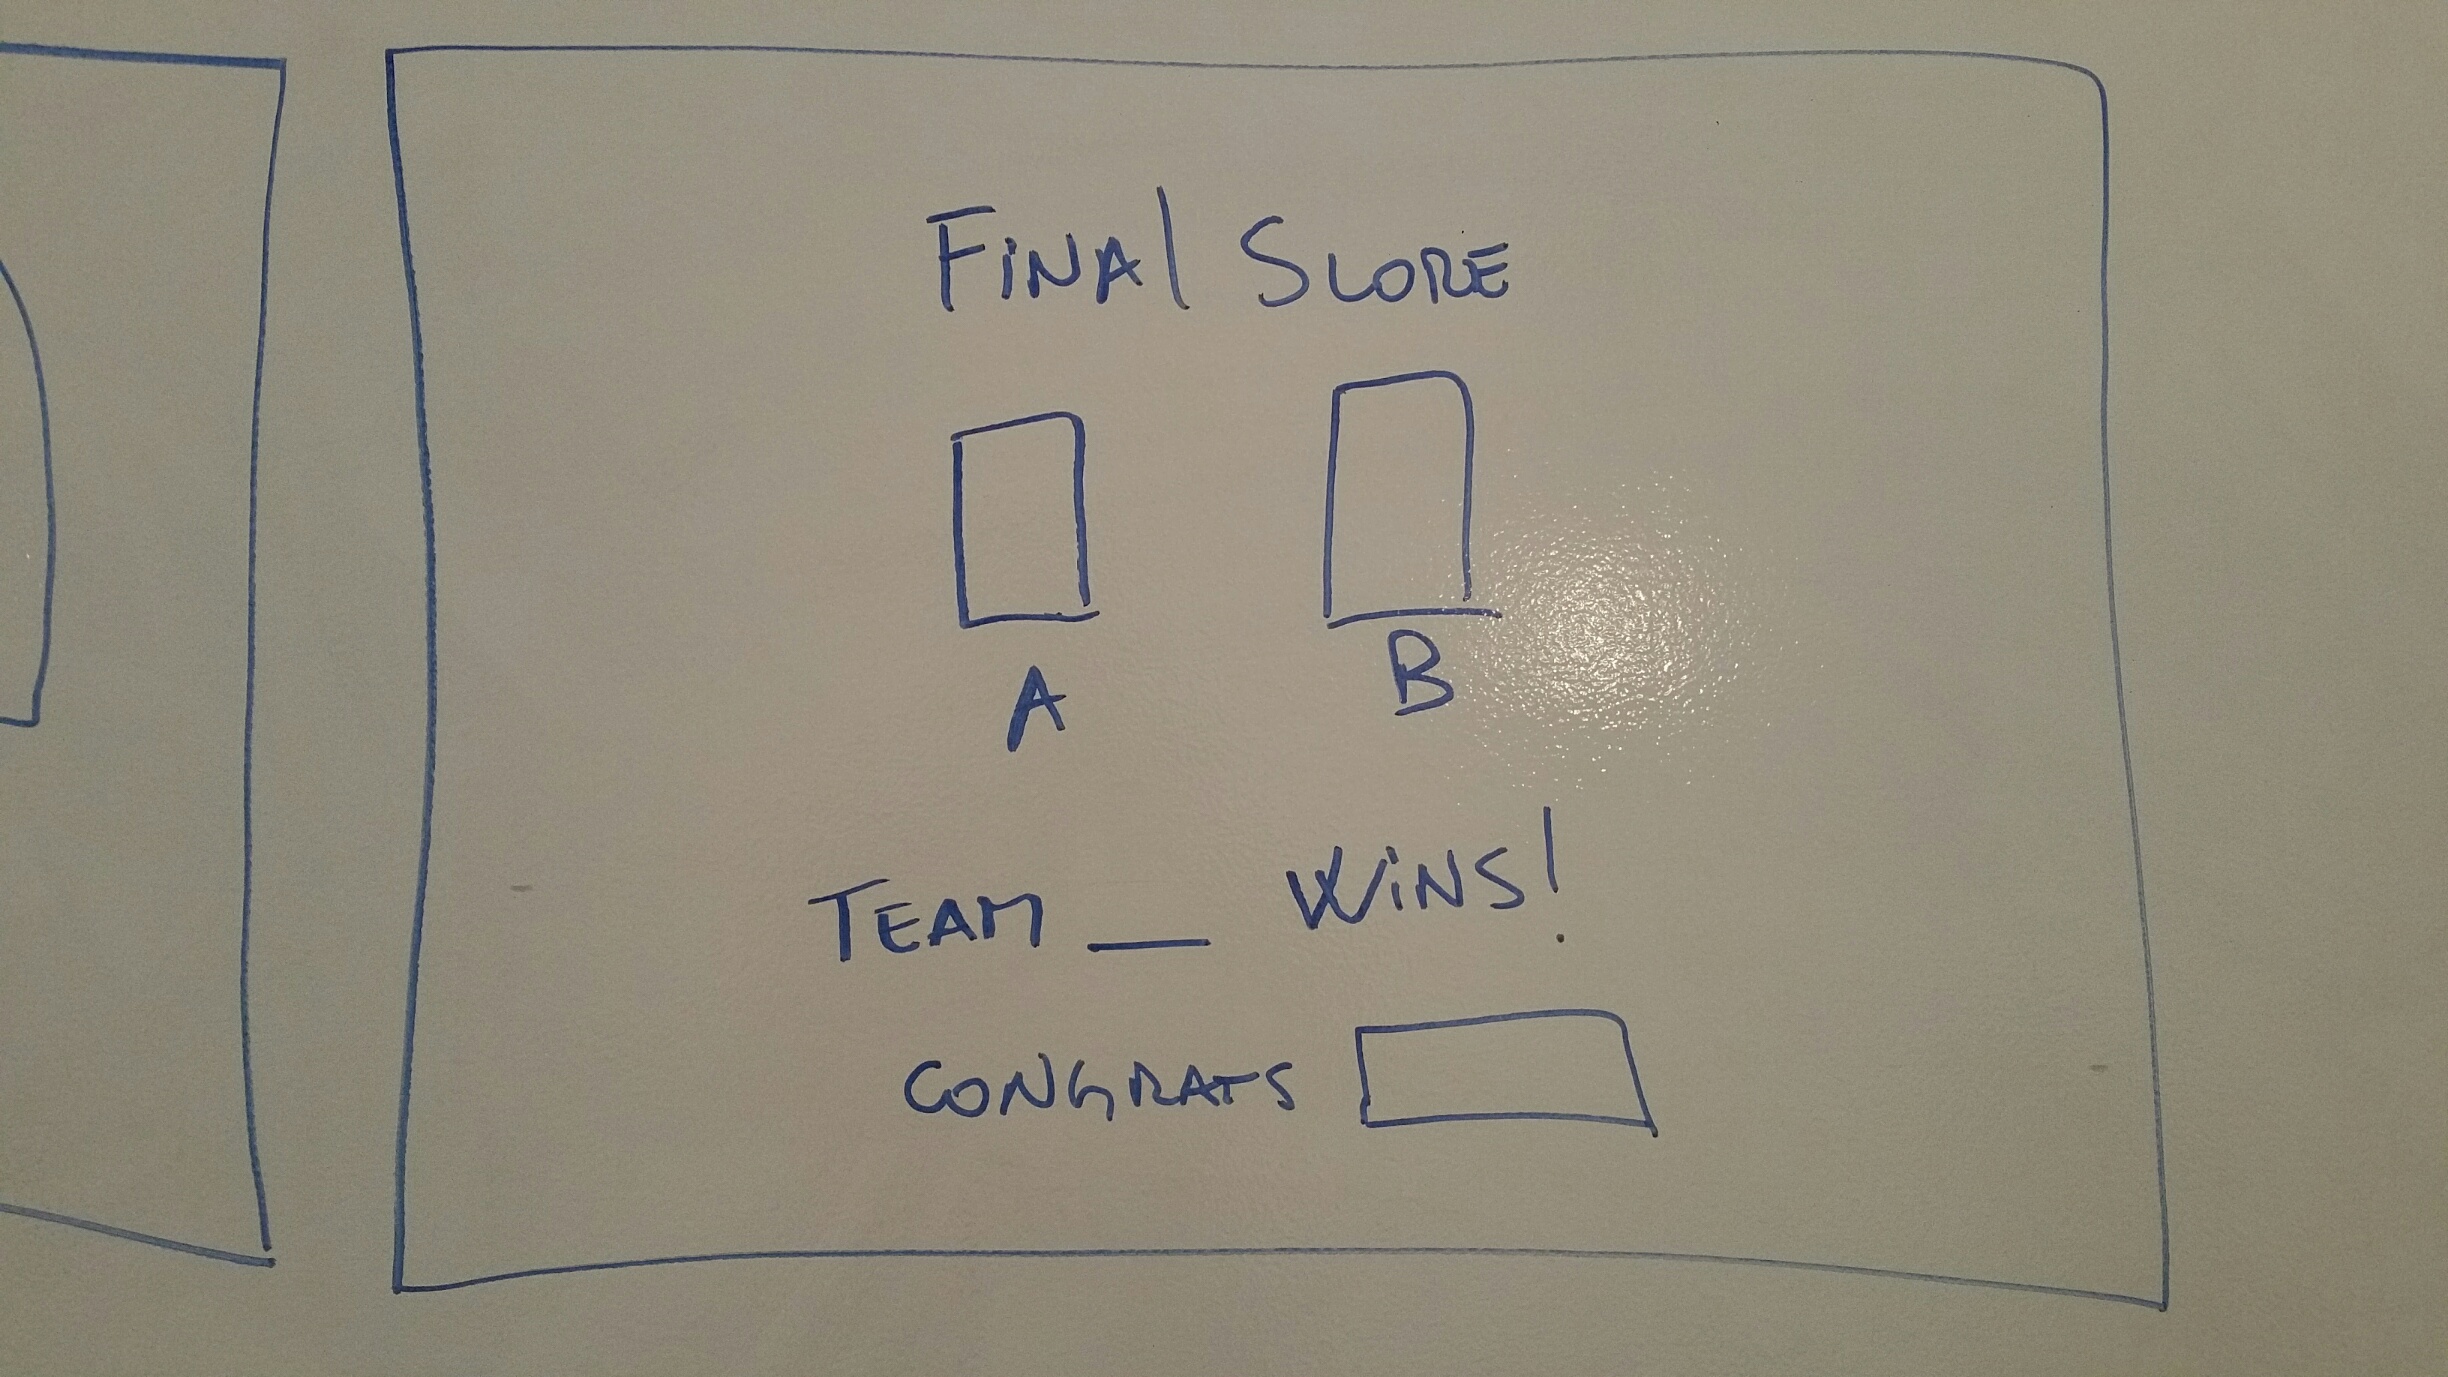 FiNAl SCORE
A B
TEAM __ WiNS!
CONGRATS